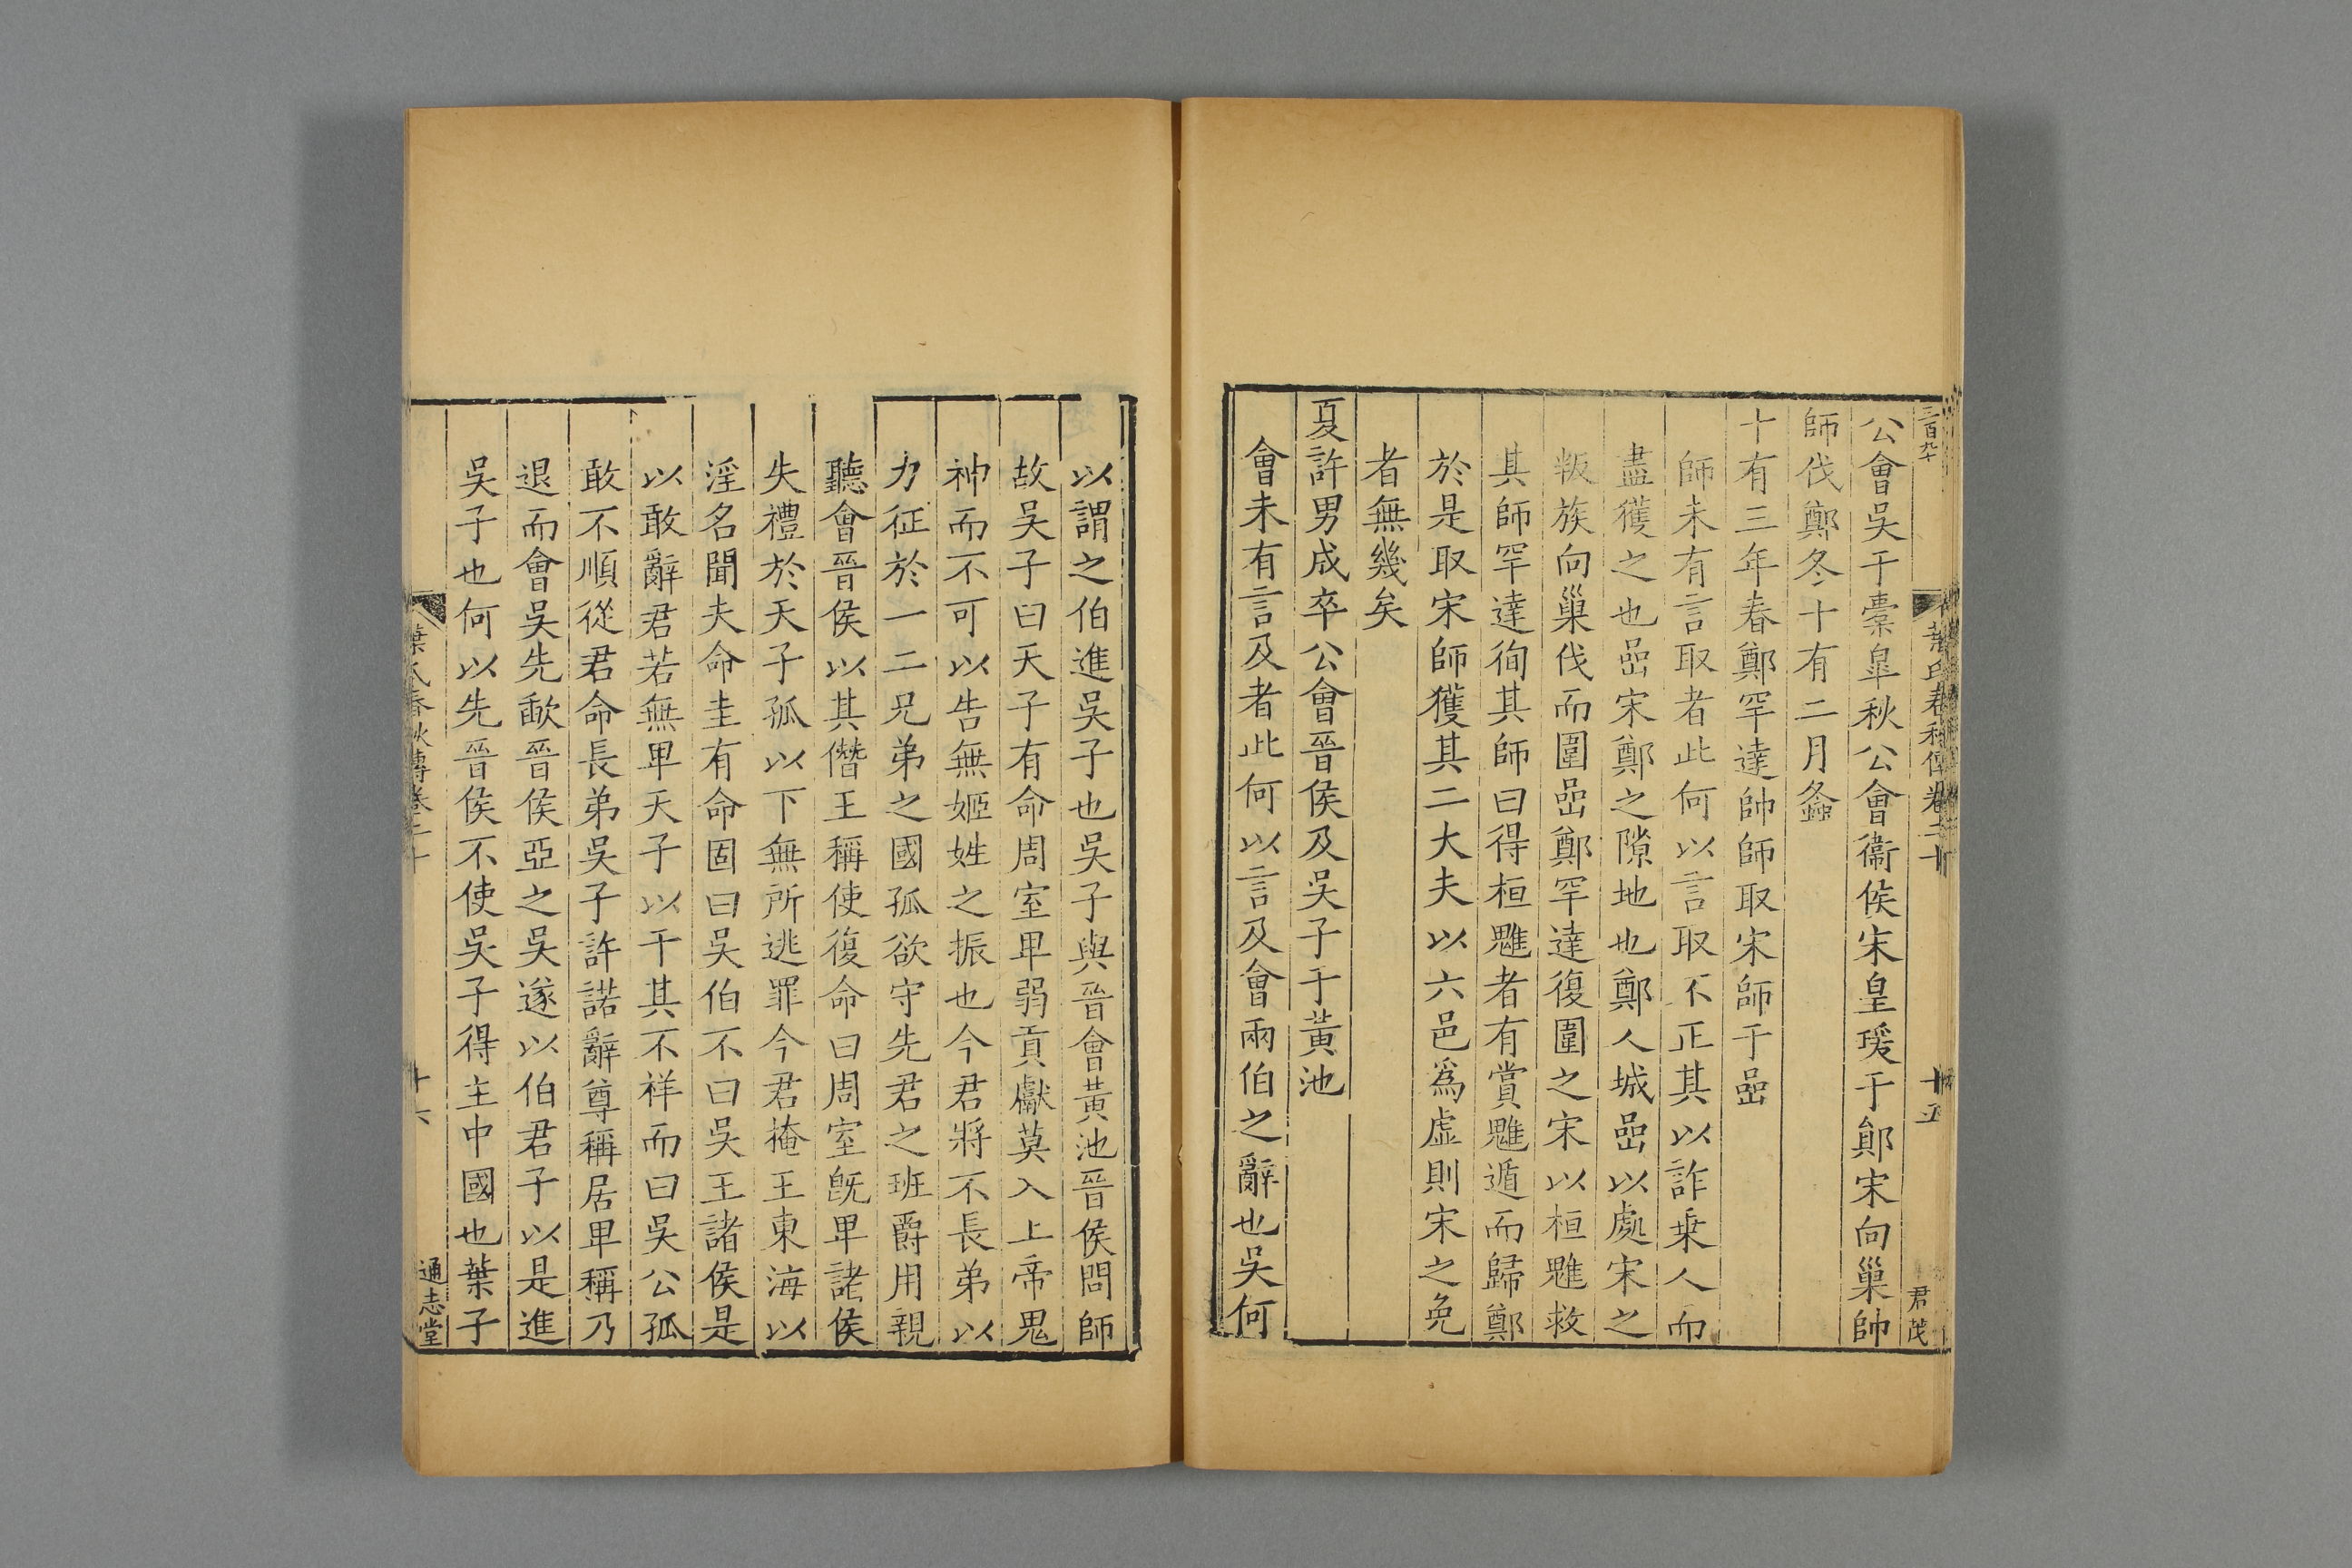 葉氏春秋傳卷二十
十五
君茂
公會吳于橐皐秋公會衞侯宋皇瑗于鄖宋向巢帥
師伐鄭冬十有二月螽
十有三年春鄭罕達帥師取宋師于嵒
師未有言取者此何以言取不正其以詐乗人而
盡獲之也嵒宋鄭之隙地也鄭人城嵒以處宋之
叛族向巢伐而圍嵒鄭罕達復圍之宋以桓魋救
其師罕達徇其師曰得桓魋者有賞魋遁而歸鄭
於是取宋師獲其二大夫以六邑爲虛則宋之免
者無幾矣
夏許男成卒公會晉侯及吳子于黃池
會未有言及者此何以言及會兩伯之辭也吳何
以謂之伯進吳子也吳子與晉會黃池晉侯問師
故吳子曰天子有命周室卑弱貢獻莫入上帝鬼
神而不可以告無姬姓之振也今君將不長弟以
力征於一二兄弟之國孤欲守先君之班爵用親
聽會晉侯以其僭王稱使復命曰周室旣卑諸侯
失禮於天子孤以下無所逃罪今君掩王東海以
淫名聞夫命圭有命固曰吳伯不曰吳王諸侯是
以敢辭君若無卑天子以干其不祥而曰吳公孤
敢不順從君命長弟吳子許諾辭尊稱居卑稱乃
退而會吳先歃晉侯亞之吳遂以伯君子以是進
吳子也何以先晉侯不使吳子得主中國也葉子
葉氏春秋傳卷二十
十六
通志堂